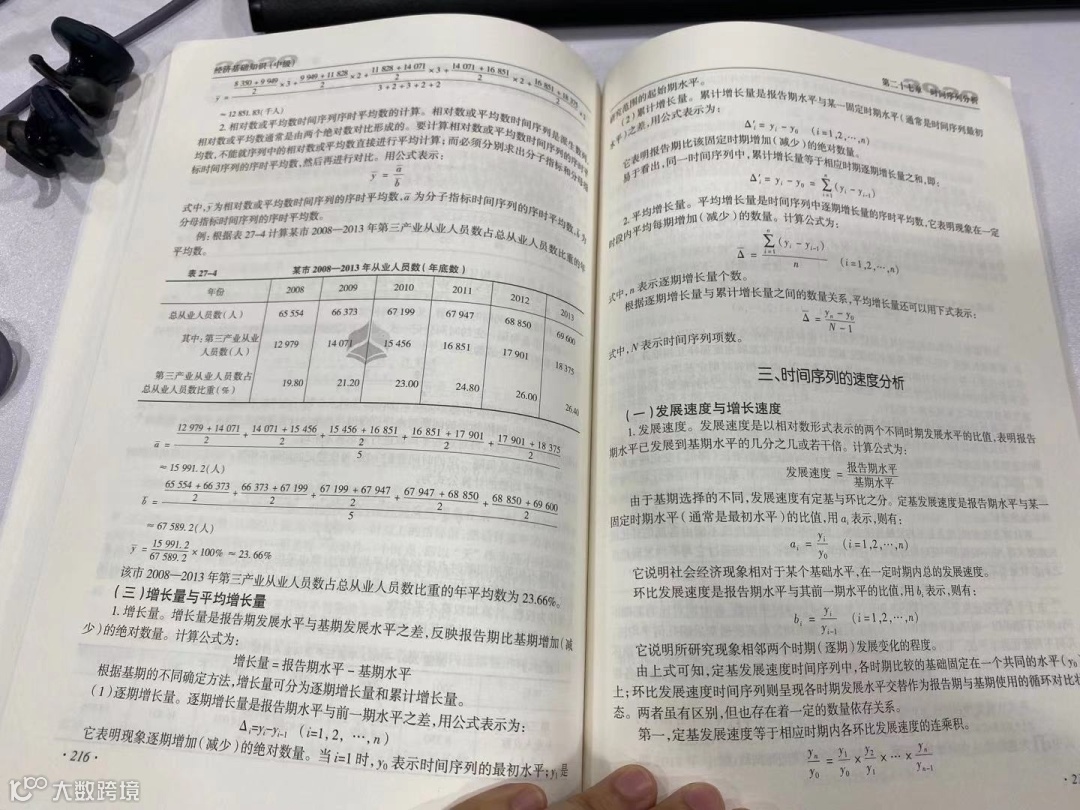 经济基础知识(中级)
ȳ = (8 350 + 9 949)/2 × 3 + (9 949 + 11 828)/2 × 2 + (11 828 + 14 071)/2 × 3 + (14 071 + 16 851)/2 × 2 + (16 851 + 18 375)/2
3 + 2 + 3 + 2 + 2
≈ 12 851.83(千人)
2. 相对数或平均数时间序列序时平均数的计算。相对数或平均数时间序列是派生数列,
相对数或平均数通常是由两个绝对数对比形成的。要计算相对数或平均数时间序列的序时平
均数,不能就序列中的相对数或平均数直接进行平均计算;而必须分别求出分子指标和分母指
标时间序列的序时平均数,然后再进行对比。用公式表示:
ȳ = ā/b̄
式中,ȳ为相对数或平均数时间序列的序时平均数,ā 为分子指标时间序列的序时平均数,b̄ 为
分母指标时间序列的序时平均数。
例:根据表 27-4 计算某市 2008—2013 年第三产业从业人员数占总从业人员数比重的年
平均数。
表 27-4 某市 2008—2013 年从业人员数(年底数)
年份 2008 2009 2010 2011 2012 2013
总从业人员数(人) 65 554 66 373 67 199 67 947 68 850 69 600
其中:第三产业从业
人员数(人) 12 979 14 071 15 456 16 851 17 901 18 375
第三产业从业人员数占
总从业人员数比重(%) 19.80 21.20 23.00 24.80 26.00 26.40
ā = ((12 979 + 14 071)/2 + (14 071 + 15 456)/2 + (15 456 + 16 851)/2 + (16 851 + 17 901)/2 + (17 901 + 18 375)/2)/5
≈ 15 991.2(人)
b̄ = ((65 554 + 66 373)/2 + (66 373 + 67 199)/2 + (67 199 + 67 947)/2 + (67 947 + 68 850)/2 + (68 850 + 69 600)/2)/5
≈ 67 589.2(人)
ȳ = 15 991.2/67 589.2 × 100% ≈ 23.66%
该市 2008—2013 年第三产业从业人员数占总从业人员数比重的年平均数为 23.66%。
(三)增长量与平均增长量
1. 增长量。增长量是报告期发展水平与基期发展水平之差,反映报告期比基期增加(减
少)的绝对数量。计算公式为:
增长量 = 报告期水平 - 基期水平
根据基期的不同确定方法,增长量可分为逐期增长量和累计增长量。
(1)逐期增长量。逐期增长量是报告期水平与前一期水平之差,用公式表示为:
Δᵢ=yᵢ-yᵢ₋₁ (i=1, 2, …, n)
它表明现象逐期增加(减少)的绝对数量。当 i=1 时,y₀ 表示时间序列的最初水平;y₁ 是
·216·
第二十七章 时间序列分析
研究范围的起始期水平。
(2)累计增长量。累计增长量是报告期水平与某一固定时期水平(通常是时间序列最初
水平)之差,用公式表示为:
Δ'ᵢ = yᵢ - y₀ (i=1,2,…,n)
它表明报告期比该固定时期增加(减少)的绝对数量。
易于看出,同一时间序列中,累计增长量等于相应时期逐期增长量之和,即:
Δ'ᵢ = yᵢ - y₀ = Σ(yᵢ - yᵢ₋₁)
2. 平均增长量。平均增长量是时间序列中逐期增长量的序时平均数,它表明现象在一定
时段内平均每期增加(减少)的数量。计算公式为:
Δ̄ = Σ(yᵢ - yᵢ₋₁)/n (i=1,2,…,n)
式中,n 表示逐期增长量个数。
根据逐期增长量与累计增长量之间的数量关系,平均增长量还可以用下式表示:
Δ̄ = (yₙ - y₀)/(N - 1)
式中,N 表示时间序列项数。
三、时间序列的速度分析
(一)发展速度与增长速度
1. 发展速度。发展速度是以相对数形式表示的两个不同时期发展水平的比值,表明报告
期水平已发展到基期水平的几分之几或若干倍。计算公式为:
发展速度 = 报告期水平/基期水平
由于基期选择的不同,发展速度有定基与环比之分。定基发展速度是报告期水平与某一
固定时期水平(通常是最初水平)的比值,用 aᵢ 表示,则有:
aᵢ = yᵢ/y₀ (i=1,2,…,n)
它说明社会经济现象相对于某个基础水平,在一定时期内总的发展速度。
环比发展速度是报告期水平与其前一期水平的比值,用 bᵢ 表示,则有:
bᵢ = yᵢ/yᵢ₋₁ (i=1,2,…,n)
它说明所研究现象相邻两个时期(逐期)发展变化的程度。
由上式可知,定基发展速度时间序列中,各时期比较的基础固定在一个共同的水平(y₀)
上;环比发展速度时间序列则呈现各时期发展水平交替作为报告期与基期使用的循环对比状
态。两者虽有区别,但也存在着一定的数量依存关系。
第一,定基发展速度等于相应时期内各环比发展速度的连乘积。
yₙ/y₀ = y₁/y₀ × y₂/y₁ × … × yₙ/yₙ₋₁
大数跨境